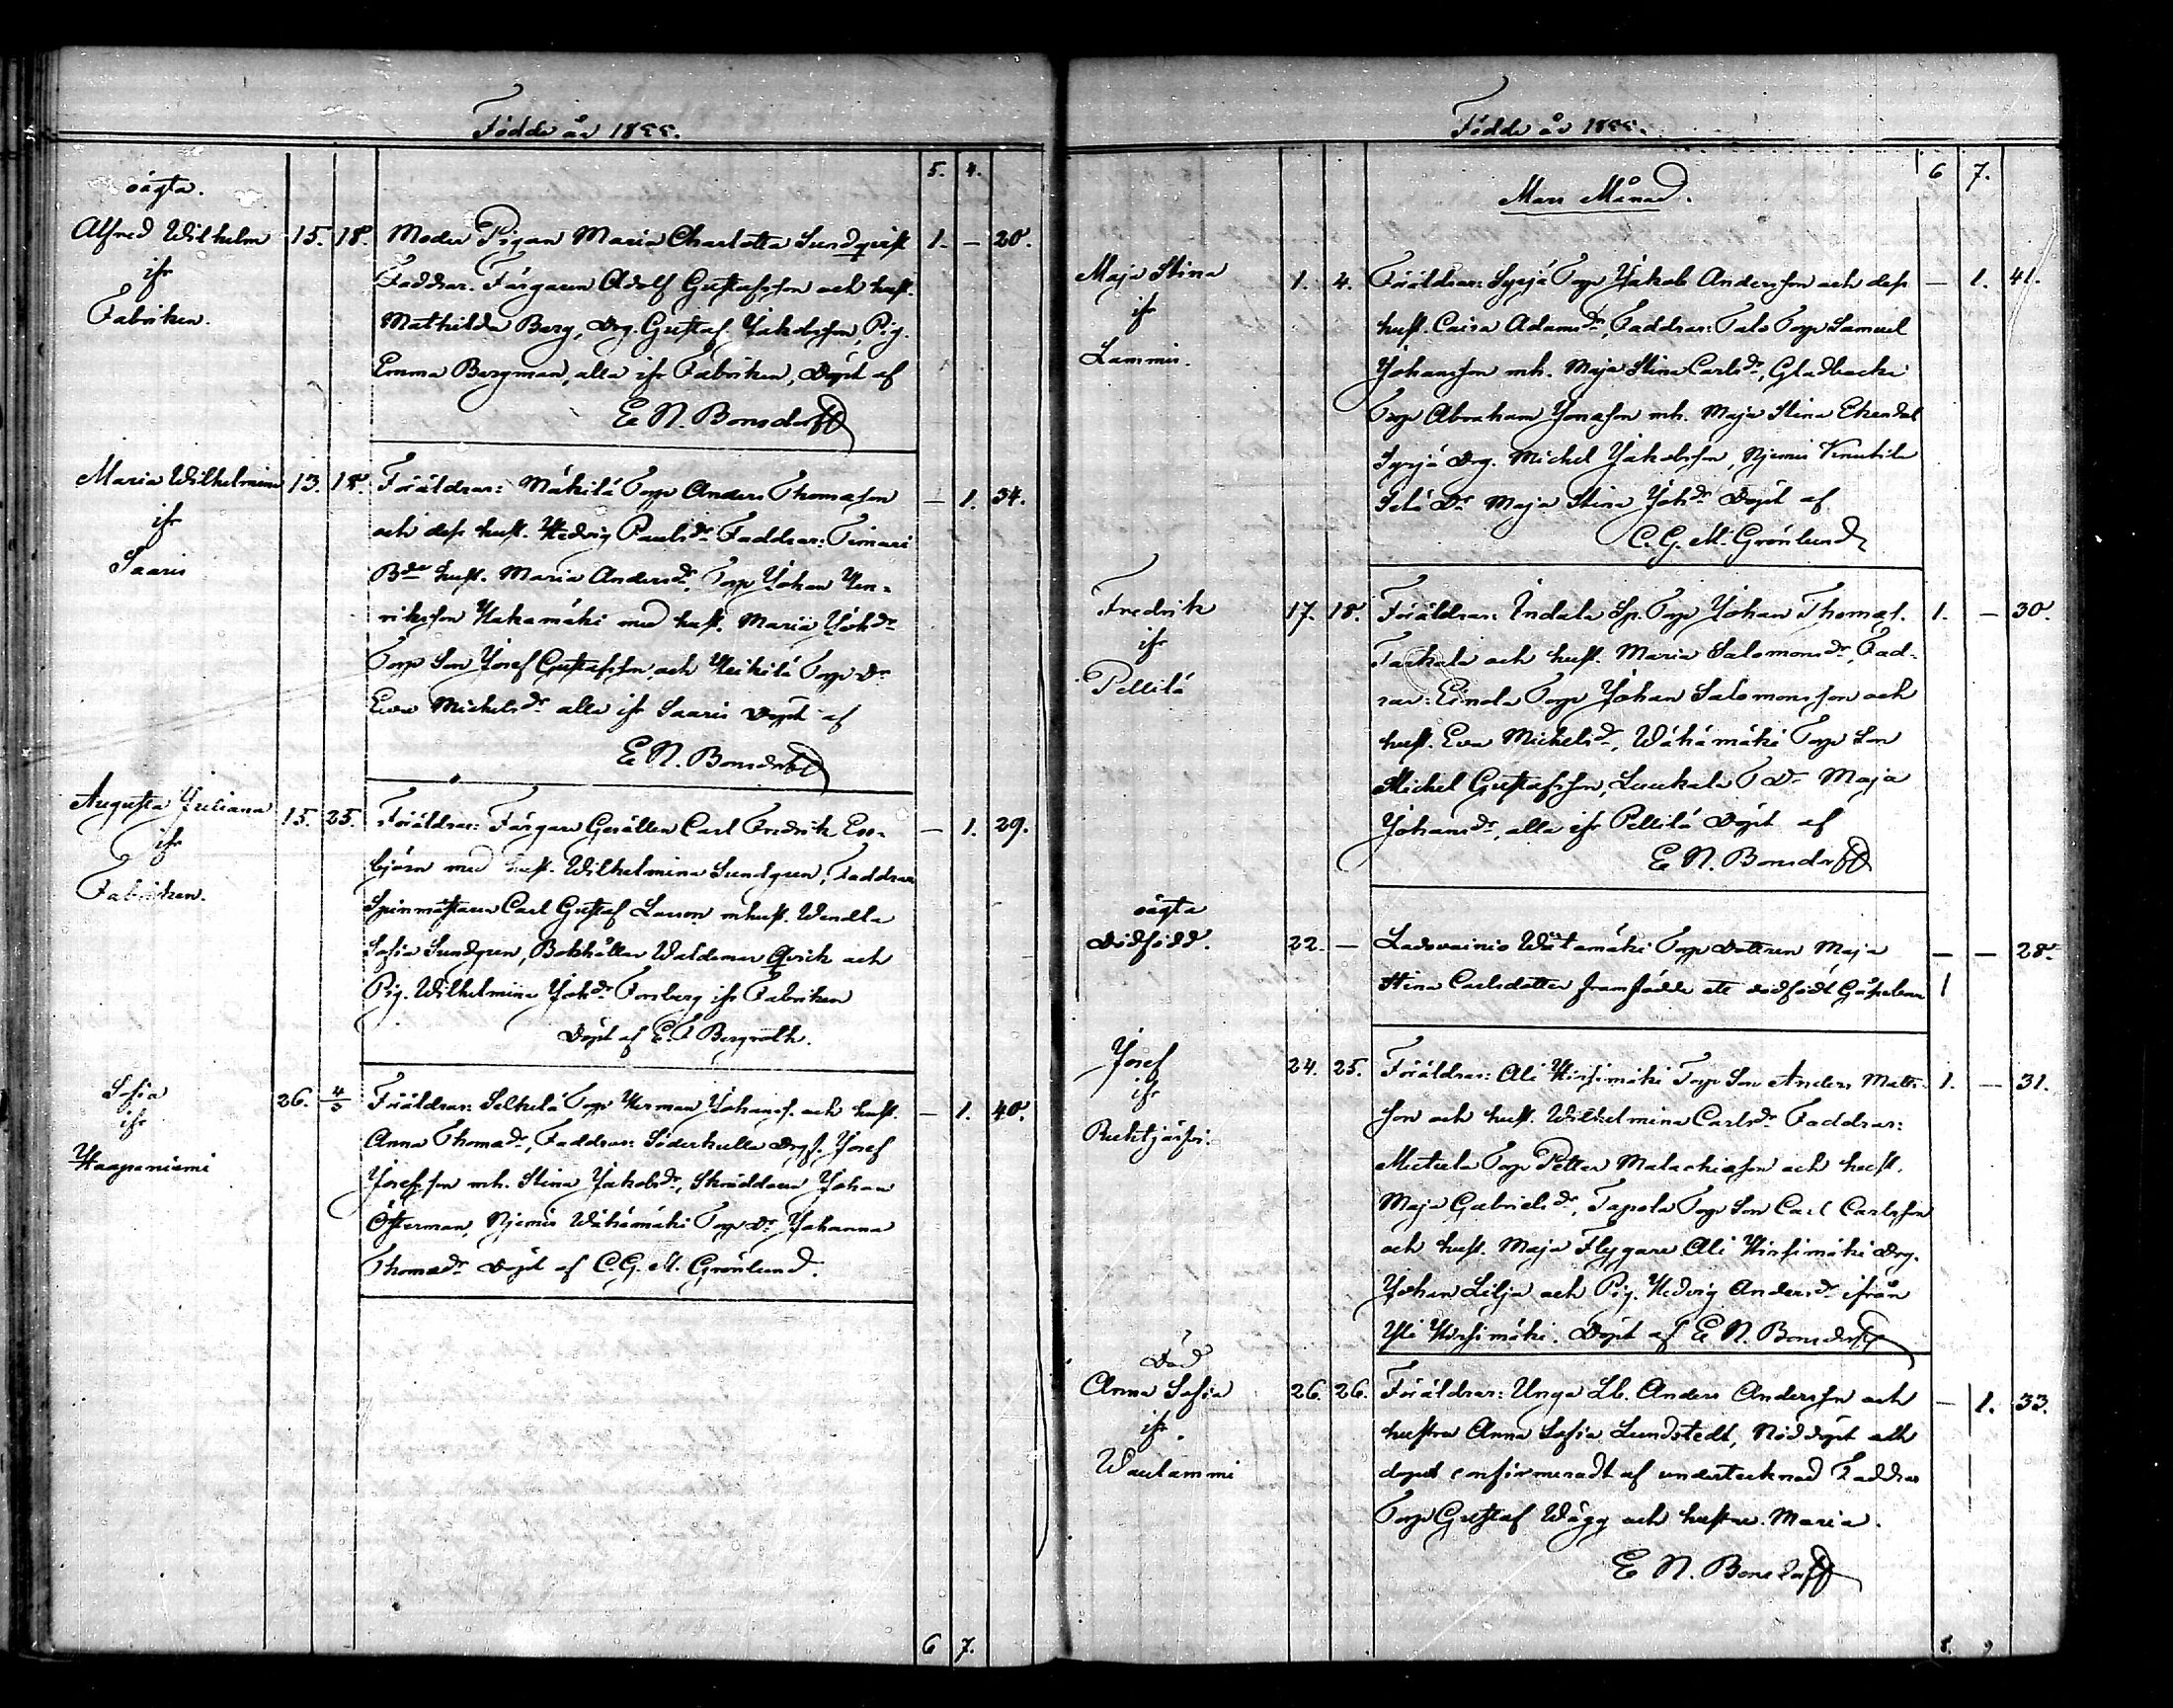 Födde år 1855.
5. 4.
oägta.
Alfred Wilhelm 15. 18. Moder Pigan Maria Charlotta Sundqvist 1. — 20.
ifr Faddrar. Färgaren Adolf Gustafsson och hust.
Fabriken. Mathilda Berg, Drg. Gustaf Jakobsson, Pig.
Emma Bergman, alla ifr Fabriken, Döpt af
E N. Bonsdorff
Maria Wilhelmina 13. 18. Föräldrar: Mäkilä Torp Anders Thomasson — 1. 34.
ifr och dess hust. Hedvig Paulsdr Faddrar:
Saaris Bdes hust. Maria Andersdr, Torp Johan Hen-
riksson Hakamäki med hust. Maria Johdr
Torp Son Josef Gustafsson, och Heikilä Torp dr
Eva Michelsdr alla ifr Saaris Döpt af
E N. Bonsdorff
Augusta Juliana 15. 25. Föräldrar: Färgare Gesällen Carl Fredrik Es- — 1. 29.
ifr björn med hust. Wilhelmina Sundgren, Faddrar
Fabriken. Spinmästaren Carl Gustaf Larson mhust. Wendla
Sofia Sundgren, Bokhållar Waldemar Qvick och
Pig. Wilhelmina Johdr Forsberg ifr Fabriken
Döpt af E. F Bergroth.
Sofia 26. 4/3 Föräldrar: Selkelä Torp Herman Johanss. och hust. — 1. 40.
ifr Anna Thomadr, Faddrar: Söderkulla Josef
Haapaniemi Josefsson mh. Stina Jakobsdr, Skräddaren Johan
Österman, Njemis Wähämäki Torp dr Johanna
Thomadr Döpt af C. G. M. Grönlund.
6 7.
Födde år 1855.
6 7.
Mars Månad.
Maja Stina 1. 4. Föräldrar: Syrjä Torp Jakob Andersson och dess — 1. 41.
ifr hust. Caisa Adamsdr, Faddrar: Talo Torp Samuel
Lammis. Johansson mh. Maja Stina Carlsdr, Gladbacka
Torp Abraham Jonasson mh. Maja Stina Ekendal
Syrjä Drg. Michel Jakobsson, Njemis Knutila
Dr Maja Stina Johdr Döpt af
C. G. M. Grönlund
Fredrik 17. 18. Föräldrar: Indala Sp. Torp Johan Thomass. 1. — 30.
ifr Taskala och hust. Maria Salomonsdr, Fad-
Pellilä rar: Einola Torp Johan Salomonsson och
hust. Eva Michelsdr, Wähämäki Torp Son
Michel Gustafsson, Luukala T dr Maja
Johansdr, alla ifr Pellilä Döpt af
E N. Bonsdorff
oägta
Dödfödd. 22. — Ladovainio Wätämäki Torp Dottren Maja — — 28.
Stina Carlsdotter framfödde ett dödfödt Gåssebarn 1
Josef 24. 25. Föräldrar: Ali Hirsimäki Torp Son Anders Matts- 1. — 31.
ifr son och hust. Wilhelmina Carlsdr Faddrar:
Ruhtjärfvi. Torp Petter Malachiasson och hust.
Maja Gabrielsdr, Tapola Torp Son Carl Carlsson
och hust. Maja Flygare, Ali Hirsimäki Drg.
Johan Lilja och Pig. Hedvig Andersdr ifrån
Yli Hirsimäki. Döpt af E N. Bonsdorff
Död
Anna Sofia 26. 26. Föräldrar: Unga Lb. Anders Andersson och — 1. 33.
ifr. hustru Anna Sofia Lundstedt, Nöddöpt och
Waulammi dopet confirmeradt af undertecknad Faddrar
Torp Gustaf Wägg och hustru Maria.
E N. Bonsdorff
8. 9